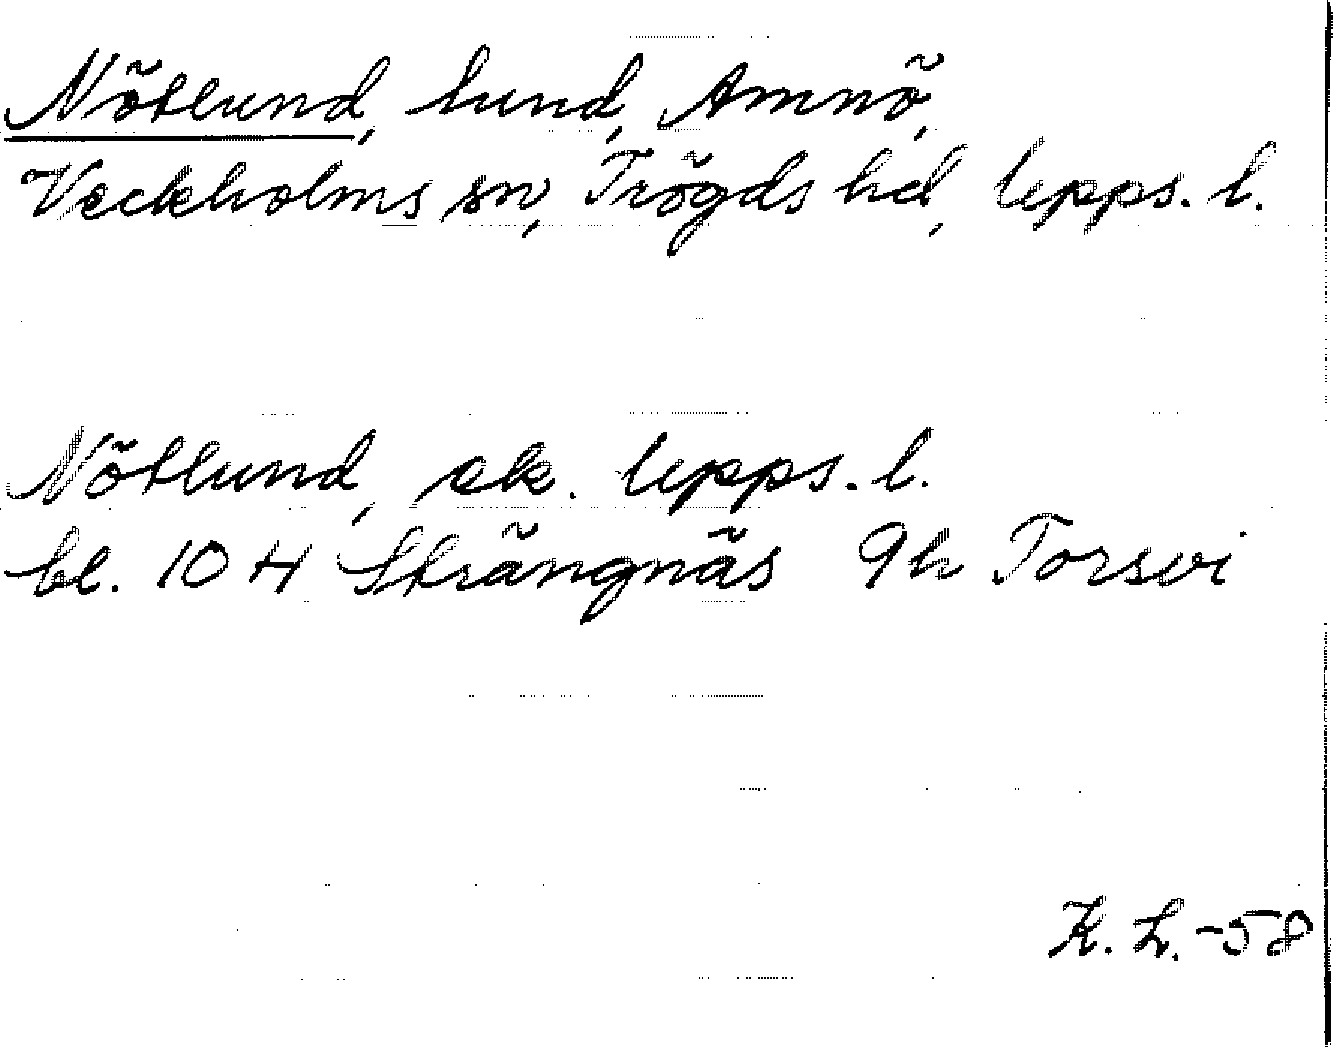 Nötlund, lund, Amnö,
Veckholms sn, Trögds hd, Upps. l.
Nötlund, ek. Upps. l.
bl. 10 H Strängnäs 9h Torsvi
K. L. -58